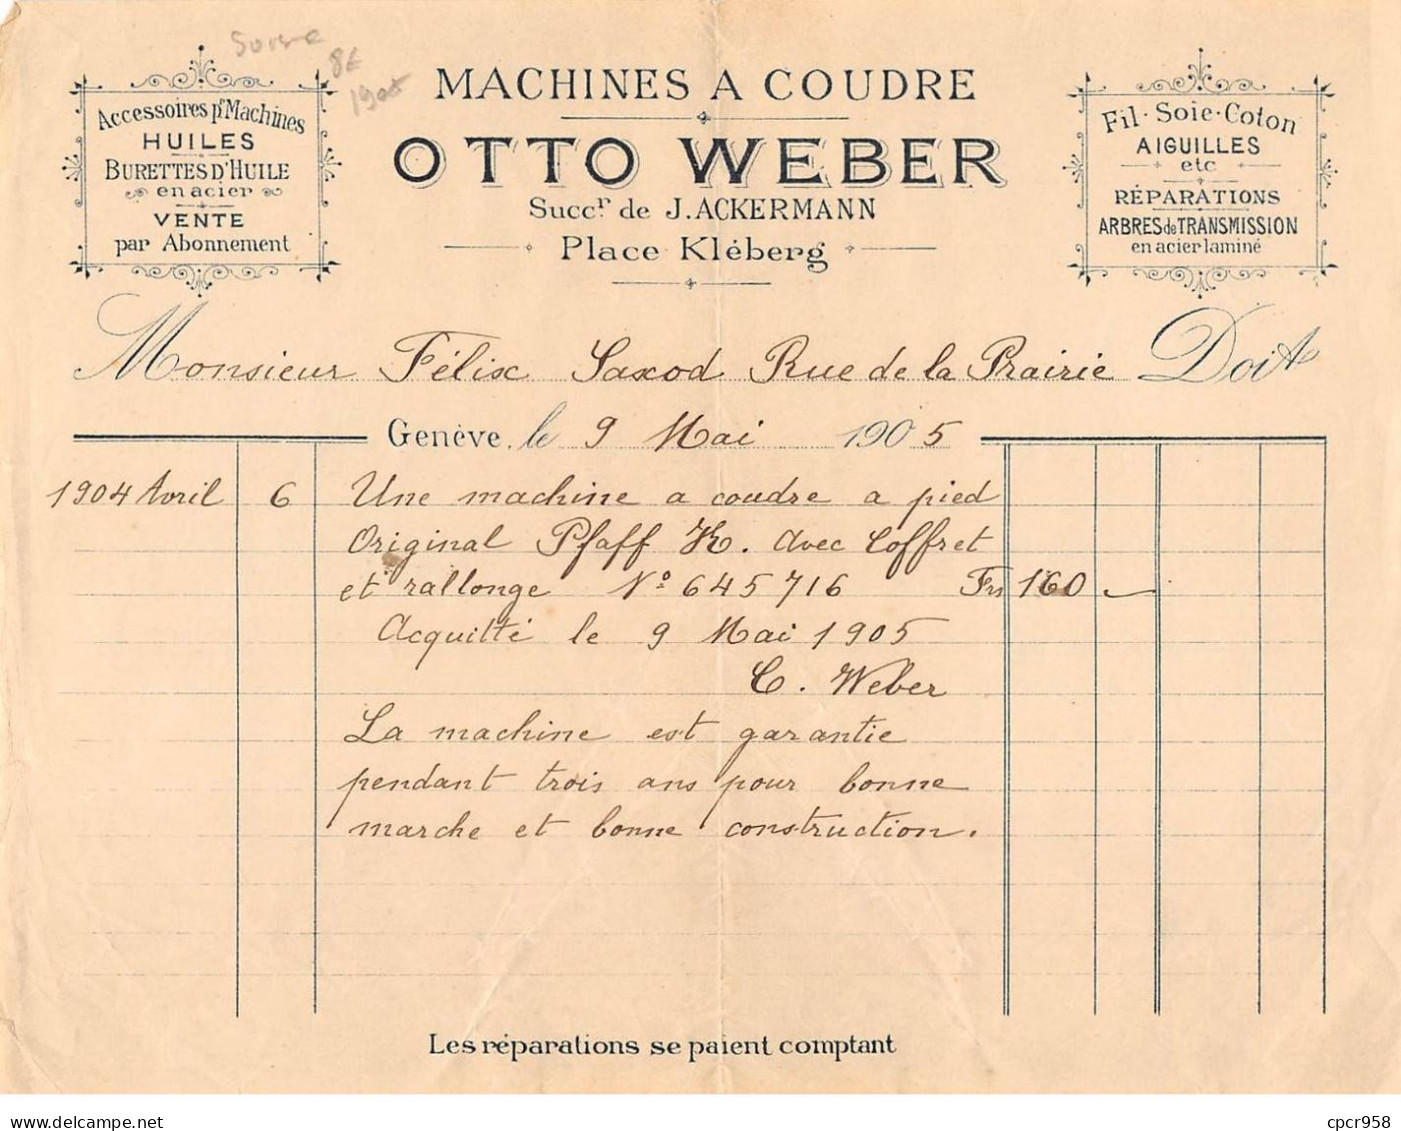 Suisse
8€
1905
Accessoires pr Machines
HUILES
BURETTES D'HUILE
en acier
VENTE
par Abonnement
MACHINES A COUDRE
OTTO WEBER
Succr de J. ACKERMANN
Place Kléberg
Fil · Soie · Coton
AIGUILLES
etc
RÉPARATIONS
ARBRES de TRANSMISSION
en acier laminé
Monsieur Félix Saxod Rue de la Prairie Doit
Genève, le 9 Mai 1905
1904 Avril 6 Une machine a coudre a pied
Original Pfaff K. avec Coffret
et rallonge No 645716 Frs 160 —
Acquitté le 9 Mai 1905
C. Weber
La machine est garantie
pendant trois ans pour bonne
marche et bonne construction.
Les réparations se paient comptant
delcampe.net
cpcr958